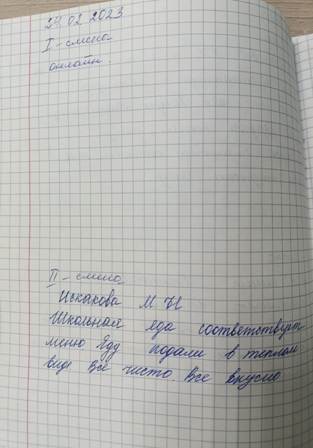 24.02.2023
I - смена
онлайн.
II - смена
Искакова М Н
Школьная еда соответствует
меню Еду подали в теплом
виде Все чисто. Все вкусно